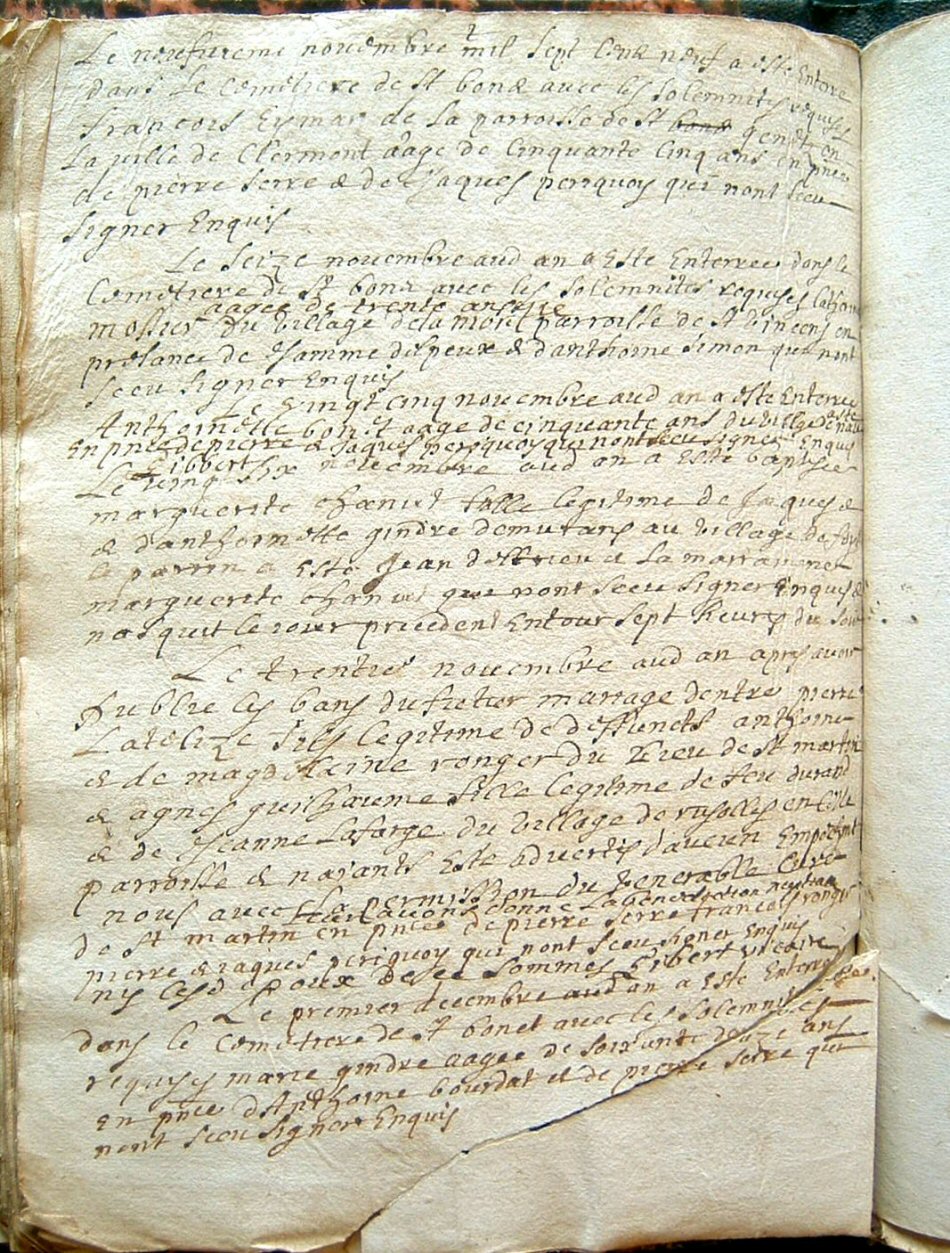 Le neufvieme novembre mil sept cent neuf a este Enterre
dans Le Cemetiere de st bonet avec les solemnites requises
francois Eymar de La parroisse de st gendr en
La ville de Clermont aage de Cinquante Cinq ans en pnce
de pierre serre & de Jaques periquoy qui nont sceu
signer Enquis
Le seize novembre aud an a Este Enterree dans le
Cemetiere de st bonet avec les solemnites requises
aagee de trente ans
mosnier du village de la parroisse de st vincens en
presance de & danthoine simon qui nont
sceu signer Enquis
Le vingt cinq novembre aud an a este Enterree
Anthoinette aage de cinquante ans du village
En pnce de pierre & Jaques periquoy qui nont sceu signer Enquis
Gibbert
Le ving six novembre aud an a Este baptisee
marguerite chanut fille legitime de Jaques &
& danthoinette gindre demurans au village de
le parrin a Este Jean & La marraine
marguerite chanut qui nont sceu signer Enquis &
nasquit le jour precedent Entour sept heures du soir
Le trentie novembre aud an apres avoir
publie les bans du futur mariage dentre pierre
fils legitime de deffuncts anthoine
& de magdelaine ronger du Lieu de st martin
& agnes guilhaume fille legitime de feu durand
& de Jeanne Lafarge du village de rusolles en
parroisse & naiants Este advertis daucun Empechmt
nous avec La permission du venerable Cure
leur avons donne La benediction nuptiale
de st martin en pnce de pierre serre francois ronger
pierre & jaques periquoy qui nont sceu signer Enquis
ny lesd Epoux de ce sommes Gibert vicaire
Le premier decembre aud an a Este Enterree
dans le Cemetiere de st bonet avec les solemnites
requises marie gindre aagee de soixante douze ans
en pnce dAnthoine bourdat et de pierre serre qui
nont sceu signer Enquis